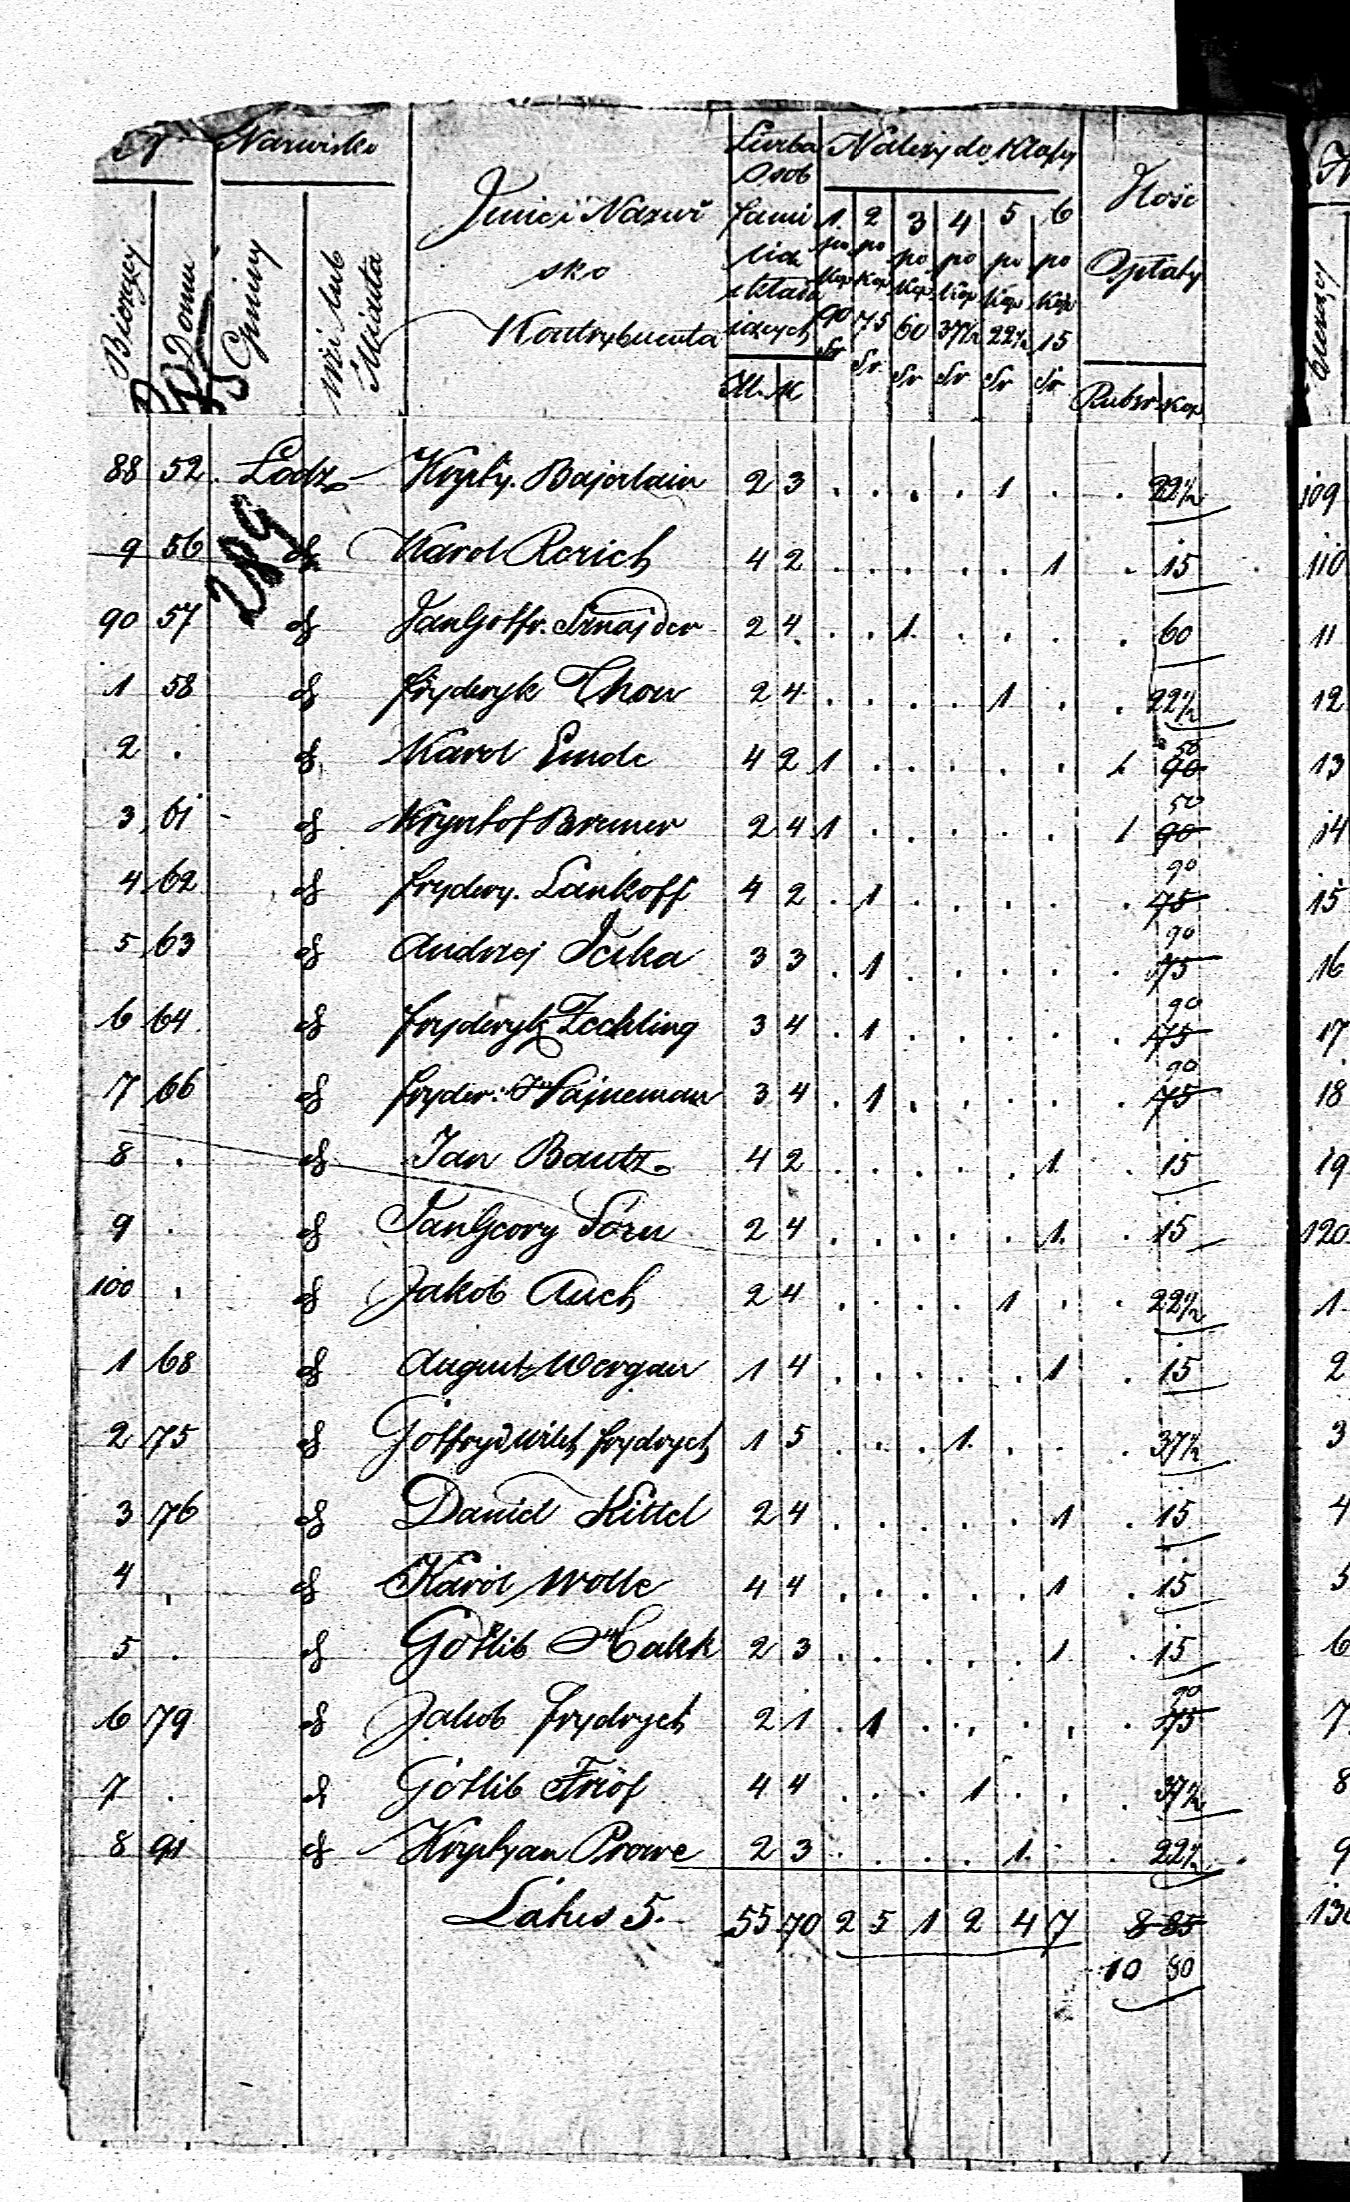 Nazwisko
Liczba Należy do Klassy
Osob
Imie i Nazwi fami 1. 2 3 4 5 6 Ilość
sko lią po po po po po po Opłaty
składa Kop Kop Kop Kop Kop Kop
Kontrybuenta iących 90 75 60 37½ 22½ 15
Sr Sr Sr Sr Sr Sr
M. K Rubsr Kop
Bieżący
Domu
Gminy
wsi lub
Miasta
289
88 52. Lodz Krysty. Bajerlain 2 3 . . . . 1 . . 22½
9 56 d Karol Rerich 4 2 . . . . . 1 . 15
90 57 d Jan Gottfr. Sznajder 2 4 . . 1 . . . . 60
1 58 d Fryderyk Thom 2 4 . . . . 1 . . 22½
2 . d Karol Ende 4 2 1 . . . . . 1 50 90
3 61 d Krysztof Bremer 2 4 1 . . . . . 1 50 90
4 62 d Frydery. Lankoff 4 2 . 1 . . . . . 90 75
5 63 d Andrzej 3 3 . 1 . . . . . 90 75
6 64 d Fryderyk Zechling 3 4 . 1 . . . . . 90 75
7 66 d Fryder: Hajneman 3 4 . 1 . . . . . 90 75
8 . d Jan Bautz 4 2 . . . . . 1 . 15
9 . d Jan Georg 2 4 . . . . . 1 . 15
100 . d Jakob Auch 2 4 . . . . 1 . . 22½
1 68 d August Wergau 1 4 . . . . . 1 . 15
2 75 d Gotfryd Wilh Frydrych 1 5 . . . 1 . . . 37½
3 76 d Daniel Kittel 2 4 . . . . . 1 . 15
4 . d Karol Wolle 4 4 . . . . . 1 . 15
5 . d Gotlib Hakk 2 3 . . . . . 1 . 15
6 79 d Jakob Frydrych 2 1 . 1 . . . . . 90 75
7 . d Gotlib 4 4 . . . 1 . . . 37½
8 91 d Krystyan Prowe 2 3 . . . . 1 . . 22½
Latus 5. 55 70 2 5 1 2 4 7 8 85
10 80
109
110
11
12
13
14
15
16
17
18
19
120
1
2
3
4
5
6
7
8
9
130